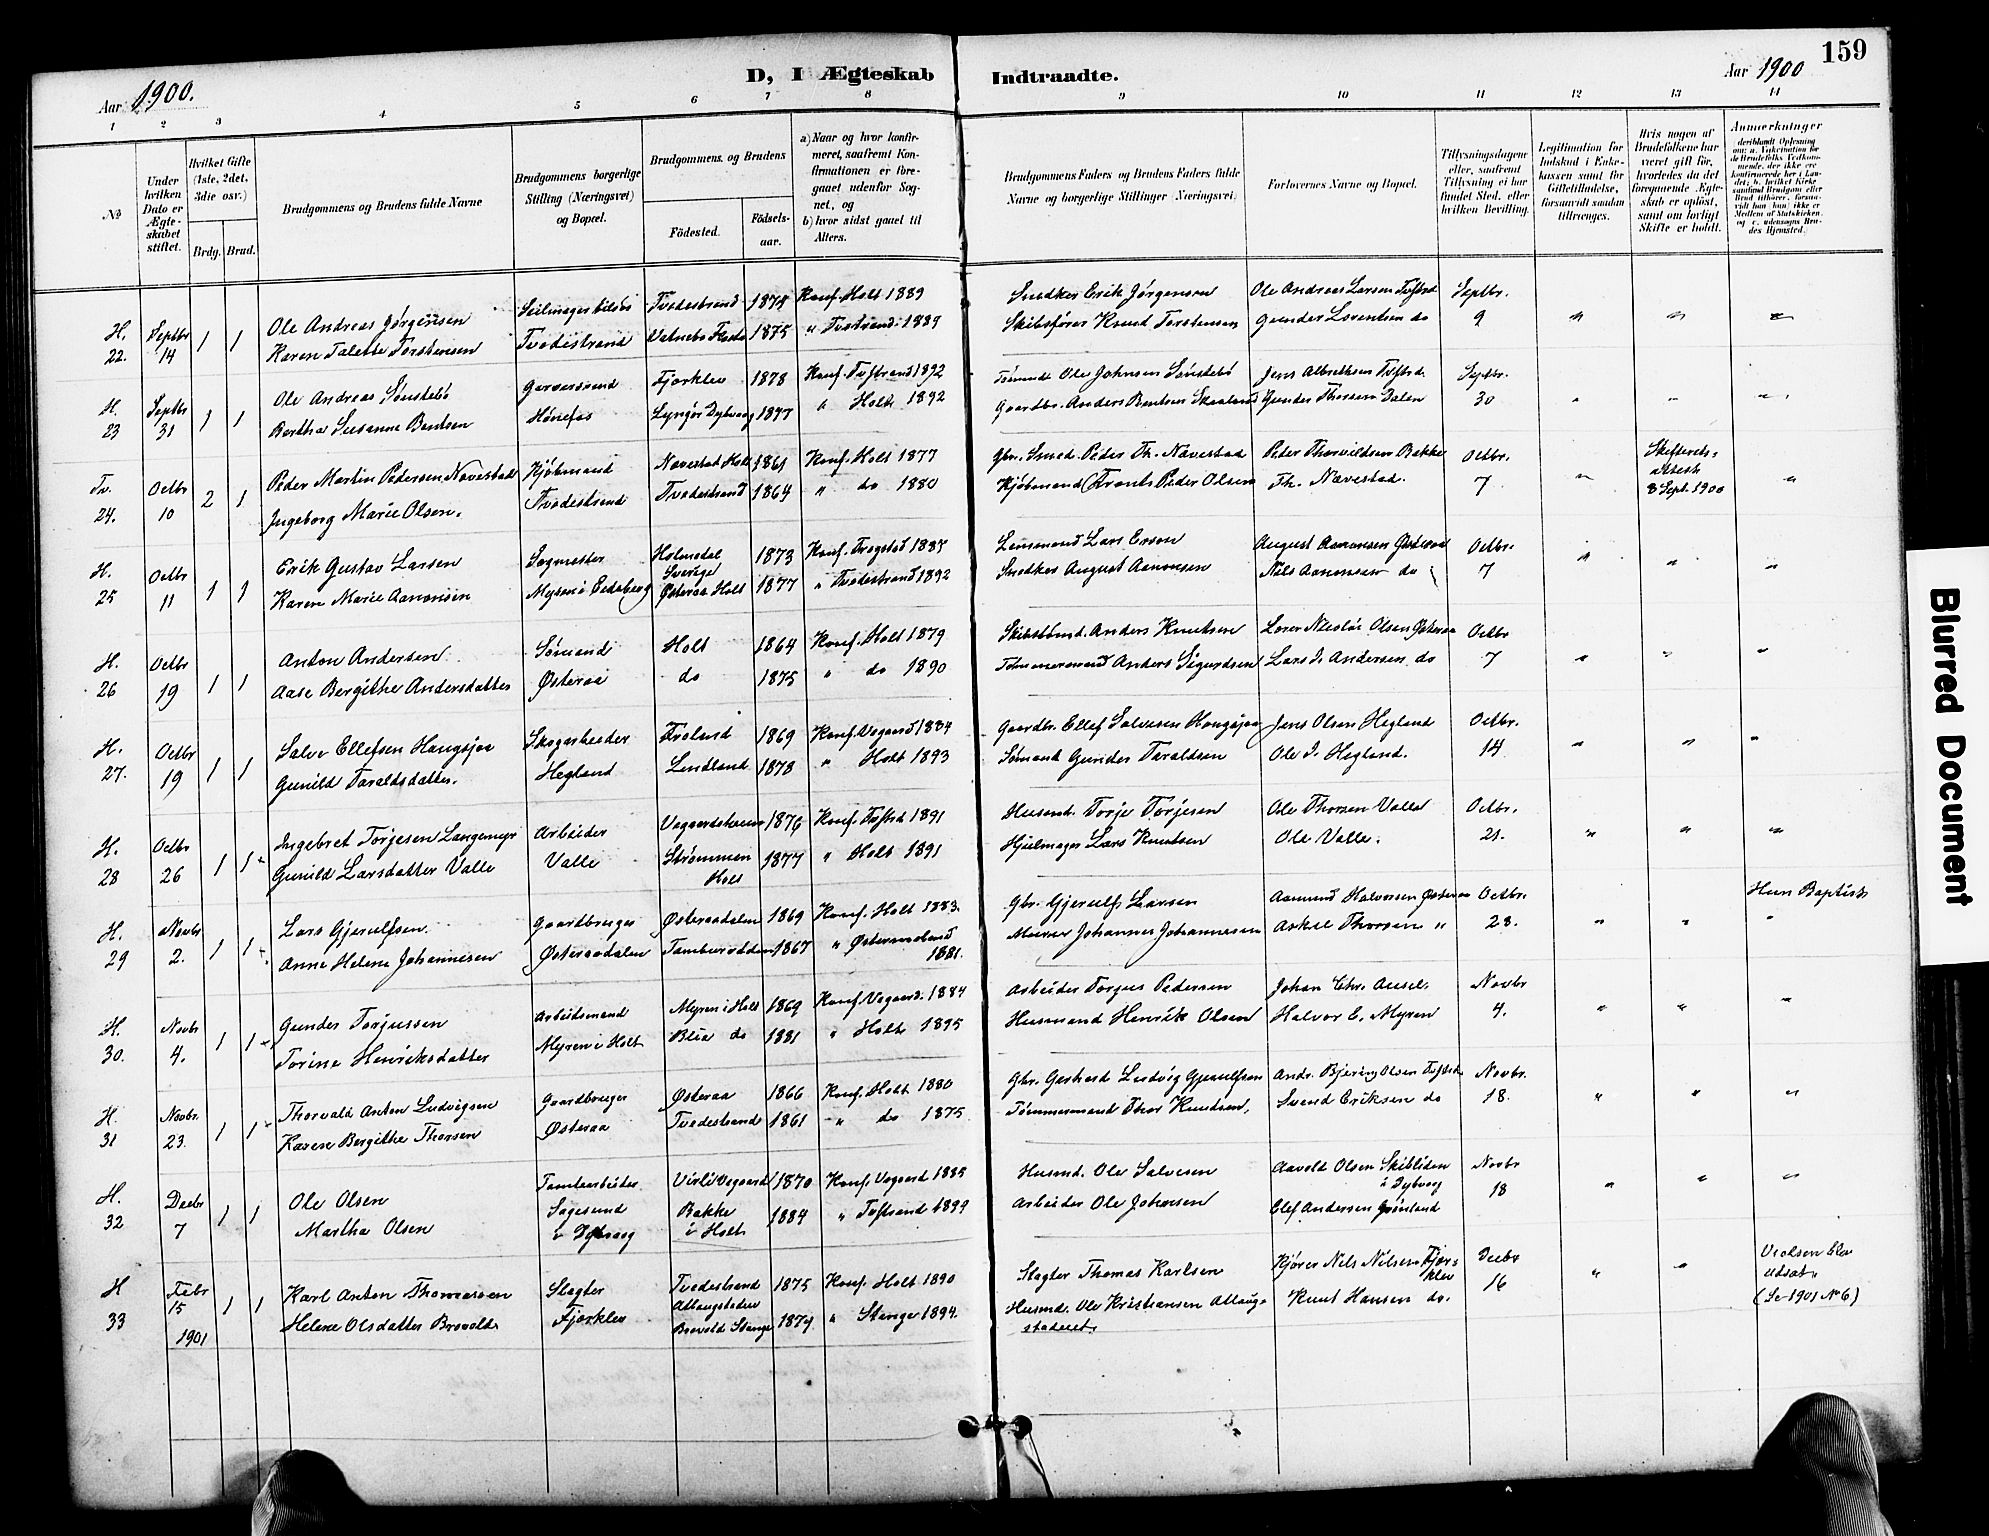 159
Aar 1900.
D, I Ægteskab Indtraadte.
Aar 1900
1 2 3 4 5 6 7 8 9 10 11 12 13 14
No
Under hvilken Dato er Ægteskabet stiftet.
Hvilket Gifte (1ste, 2det, 3die osv.)
Brdg. Brud.
Brudgommens og Brudens fulde Navne
Brudgommens borgerlige Stilling (Næringsvei) og Bopæl.
Brudgommens og Brudens
Födested. Födsels-aar.
a) Naar og hvor konfirmeret, saafremt Konfirmationen er foregaaet udenfor Sognet, og
b) hvor sidst gaaet til Alters.
Brudgommens Faders og Brudens Faders fulde Navne og borgerlige Stillinger (Næringsvei)
Forlovernes Navne og Bopæl.
Tillysningsdagene eller, saafremt Tillysning ei har fundet Sted, efter hvilken Bevilling.
Legitimation for Indskud i Enkekassen samt for Giftetilladelse, forsaavidt saadan tiltrænges.
Hvis nogen af Brudefolkene har været gift før, hvorledes da det foregaaende Ægteskab er opløst, samt om lovligt Skifte er holdt.
Anmærkninger
H. 22. Septbr 14 1 1
Ole Andreas Jørgensen Tvedestrand 1878 Konf. Holt 1889 Snedker Erik Jørgensen Ole Andreas Larsen Tvstrd Septbr.
Karen Talette Torstensen Tvedestrand 1875 " Tvestrand 1889 Skibsfører Knud Torstensen Gunder Lorentsen do 9 " " "
H. 23 Septbr 31 1 1
Ole Andreas Sønstebö Garversvend Fjærklev 1878 Konf. Tvstrand 1892 Tømmd. Ole Johnsen Sønstebö Jens Albrethsen Tvstrd. Septbr.
Bertha Susanne Bentsen Hønefos Lyngør Dybvaag 1877 " Holt 1892 Gaardbr. Anders Bentsen Skaaland Gunder Thorsen Dalen 30 " " "
Tv. 24. Octbr 10 2 1
Peder Martin Pedersen Navestad Kjøbmand Navestad Holt 1861 Konf. Holt 1877 Gbr. Smed. Peder Th. Navestad Peder Thorvildsen Bakke Octbr. Skifterets Attest
Ingeborg Marie Olsen. Tvedestrand Tvedestrand 1864 " do 1880 Kjøbmand Frants Peder Olsen Th. Navestad. 7 " 8 Sept. 1900 "
H. 25 Octbr 11 1 1
Erik Gustav Larsen Sagmester Sverige 1873 Konf. Trøgstad Lensmand Lars August Aanonsen Østeraa Octbr.
Karen Marie Aanonsen Mysen i Eidsberg Østeraa Holt 1877 " Tvedestrand 1892 Snedker August Aanonsen Nils Aanonsen do 7 " " "
H. 26 Octbr 19 1 1
Anton Andersen Sømand Holt 1864 Konf. Holt 1879 Skibstømd. Anders Knutsen Olsen Østeraa Octbr
Aase Bergithe Andersdatter Østeraa do 1875 " do 1890 Tømmermand Anders Sigurdsen Lars J. Andersen do 7 " " "
H. 27. Octbr 19 1 1
Salve Ellefsen Haugsjaa Skogarbeider Froland 1869 Konf. Vegaard 1884 Gaardbr. Ellef Salvesen Haugsjaa Jens Olsen Hegland Octbr.
Gunild Taraldsdatter. Hegland Lindland 1878 " Holt 1893 Sømand Gunder Taraldsen Ole J. Hegland. 14 " " "
H. 28 Octbr 26 1 1
Ingebret Torjesen Langemyr Arbeider Vegaardsheien 1876 Konf. Tvstrd 1891 Husmd. Torje Torjesen Ole Thorsen Valle Octbr.
Gunild Larsdatter Valle Valle Strømmen Holt 1877 " Holt 1891 Hjulmager Lars Knutsen Ole Valle. 21. " " "
H. 29 Novbr 2. 1 1
Lars Gjerulfsen. Gaardbruger Østeraadalen 1869 Konf. Holt 1883. Gbr. Gjerulf Larsen Aamund Halvorsen Østeraa Octbr. Hun Baptist
Anne Helene Johannesen Østeraadalen 1867 1881. Murer Johannes Johannesen Askel Thorsen " 28. " " "
H. 30. Novbr 4. 1 1
Gunder Torjussen Arbeidsmand Myren i Holt 1869 Konf. Vegaard. 1884 Arbeider Torjus Pedersen Johan Chr. Novbr
Torine Henriksdatter Myren i Holt do 1881 " Holt 1895 Husmand Henrik Olsen Halvor E. Myren 4. " " "
H. 31 Novbr. 23. 1 1
Thorvald Anton Ludvigsen Gaardbruger Østeraa 1866 Konf. Holt 1880 Gbr. Gerhard Ludvig Gjerulfsen Andr. Bjering Olsen Tvstrd Novbr.
Karen Bergithe Thorsen Østeraa Tvedestrand 1861 " do 1875 Tømmermand Thor Knudsen, Svend Eriksen do 18. " " "
H. 32 Decbr 7 1 1
Ole Olsen Tomtearbeider Vegaard 1870 Konf. Vegaard 1885 Husmd. Ole Salvesen Aavold Olsen Skibliden i Dybvaag Novbr
Martha Olsen Sagesund i Dybvaag Bakke i Holt 1884 " Tvstrand 1899 Arbeider Ole Johnsen Elef Andersen Grønland 18 " " "
H 33 Febr 15 1901 1 1
Karl Anton Thomassen Slagter Tvedestrand 1875 Konf. Holt 1890 Slagter Thomas Karlsen Kjører Nils Nilsen Fjærklev Decbr Vielsen blev udsat
Helene Olsdatter Brovold Fjærklev Brovold Stange 1874 " Stange 1894. Husmd. Ole Kristiansen Knut Hansen do. 16 " " (Se 1901 No 6)
Blurred Document